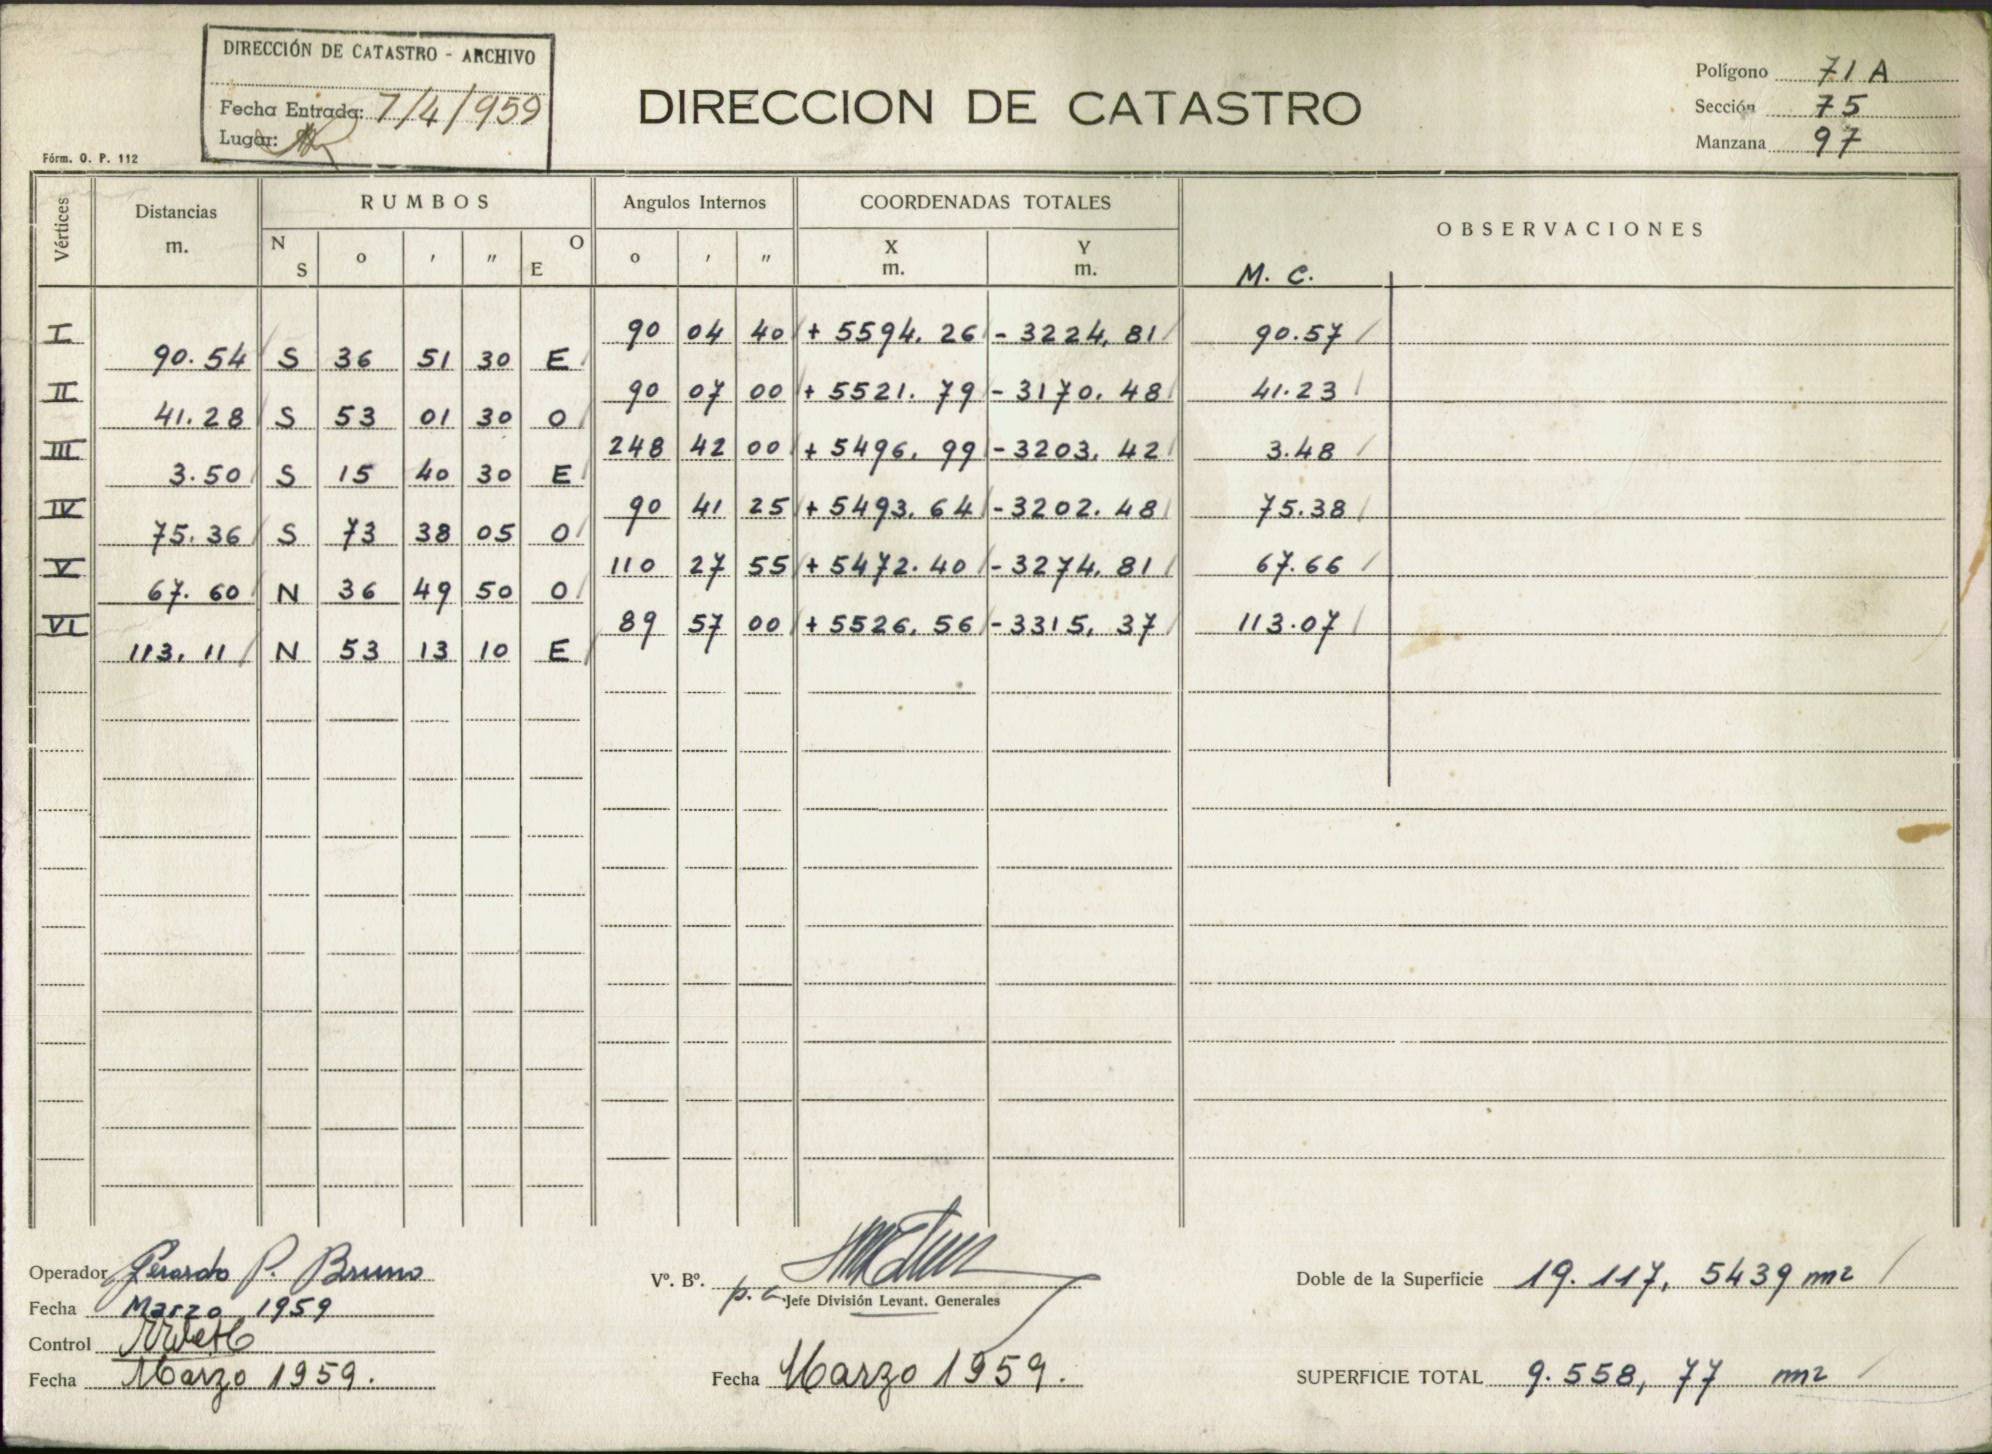 DIRECCIÓN DE CATASTRO - ARCHIVO
Fecha Entrada: 7/4/959
Lugar:
Fórm. O. P. 112
DIRECCION DE CATASTRO
Polígono 71 A
Sección 75
Manzana 97
Vértices Distancias m. RUMBOS Angulos Internos COORDENADAS TOTALES OBSERVACIONES
N S o ' " O E o ' " X m. Y m. M. C.
I 90 04 40 + 5594.26 - 3224,81 90.57
90.54 S 36 51 30 E
II 90 07 00 + 5521.79 - 3170.48 41.23
41.28 S 53 01 30 O
III 248 42 00 + 5496.99 - 3203.42 3.48
3.50 S 15 40 30 E
IV 90 41 25 + 5493.64 - 3202.48 75.38
75.36 S 73 38 05 O
V 110 27 55 + 5472.40 - 3274,81 67.66
67.60 N 36 49 50 O
VI 89 57 00 + 5526,56 - 3315,37 113.07
113.11 N 53 13 10 E
Operador Gerardo P. Bruno
Fecha Marzo 1959
Control
Fecha Marzo 1959.
Vº. Bº. p. a.
Jefe División Levant. Generales
Fecha Marzo 1959.
Doble de la Superficie 19.117, 5439 m2
SUPERFICIE TOTAL 9.558, 77 m2